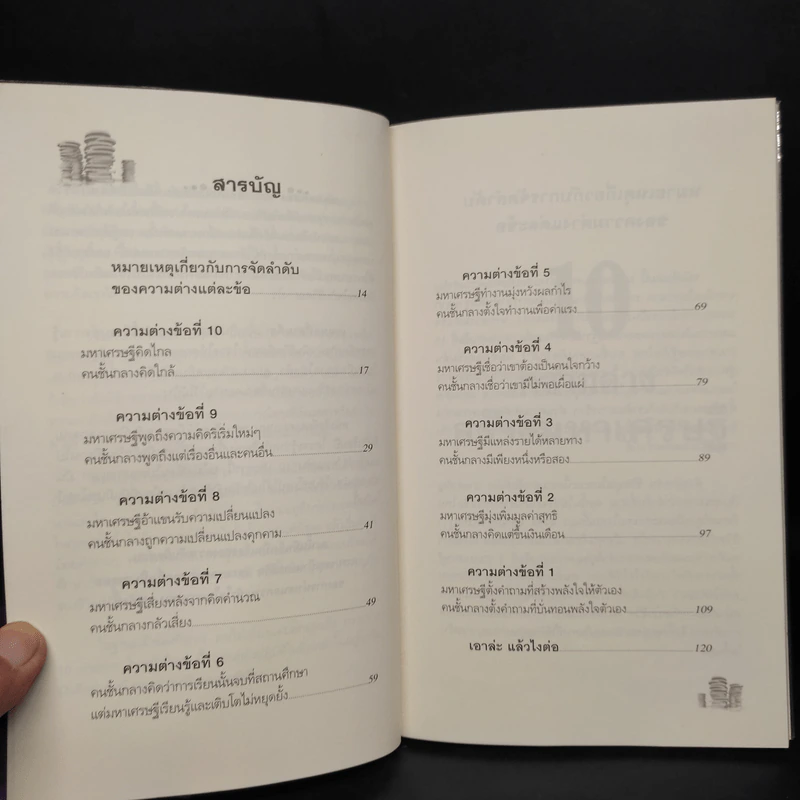 สารบัญ
หมายเหตุเกี่ยวกับการจัดลำดับ
ของความต่างแต่ละข้อ 14
ความต่างข้อที่ 10
มหาเศรษฐีคิดไกล
คนชั้นกลางคิดใกล้ 17
ความต่างข้อที่ 9
มหาเศรษฐีพูดถึงความคิดริเริ่มใหม่ๆ
คนชั้นกลางพูดถึงแต่เรื่องอื่นและคนอื่น 29
ความต่างข้อที่ 8
มหาเศรษฐีอ้าแขนรับความเปลี่ยนแปลง
คนชั้นกลางถูกความเปลี่ยนแปลงคุกคาม 41
ความต่างข้อที่ 7
มหาเศรษฐีเสี่ยงหลังจากคิดคำนวณ
คนชั้นกลางกลัวเสี่ยง 49
ความต่างข้อที่ 6
คนชั้นกลางคิดว่าการเรียนนั้นจบที่สถานศึกษา
แต่มหาเศรษฐีเรียนรู้และเติบโตไม่หยุดยั้ง 59
ความต่างข้อที่ 5
มหาเศรษฐีทำงานมุ่งหวังผลกำไร
คนชั้นกลางตั้งใจทำงานเพื่อค่าแรง 69
ความต่างข้อที่ 4
มหาเศรษฐีเชื่อว่าเขาต้องเป็นคนใจกว้าง
คนชั้นกลางเชื่อว่าเขามีไม่พอเผื่อแผ่ 79
ความต่างข้อที่ 3
มหาเศรษฐีมีแหล่งรายได้หลายทาง
คนชั้นกลางมีเพียงหนึ่งหรือสอง 89
ความต่างข้อที่ 2
มหาเศรษฐีมุ่งเพิ่มมูลค่าสุทธิ
คนชั้นกลางคิดแต่ขึ้นเงินเดือน 97
ความต่างข้อที่ 1
มหาเศรษฐีตั้งคำถามที่สร้างพลังใจให้ตัวเอง
คนชั้นกลางตั้งคำถามที่บั่นทอนพลังใจตัวเอง 109
เอาล่ะ แล้วไงต่อ 120